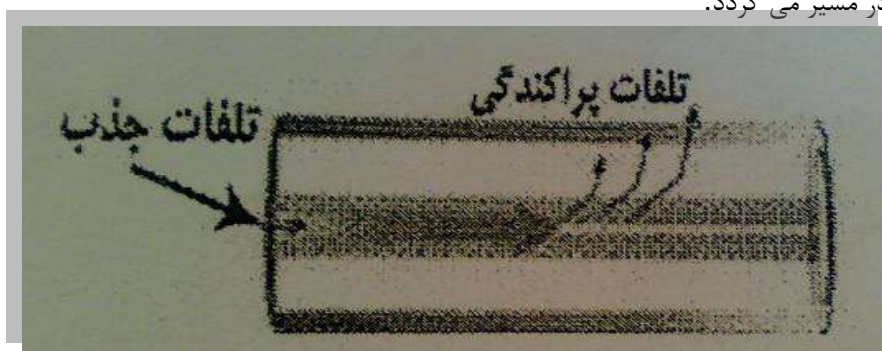 در مسیر می گردد.
تلفات پراکندگی
تلفات جذب